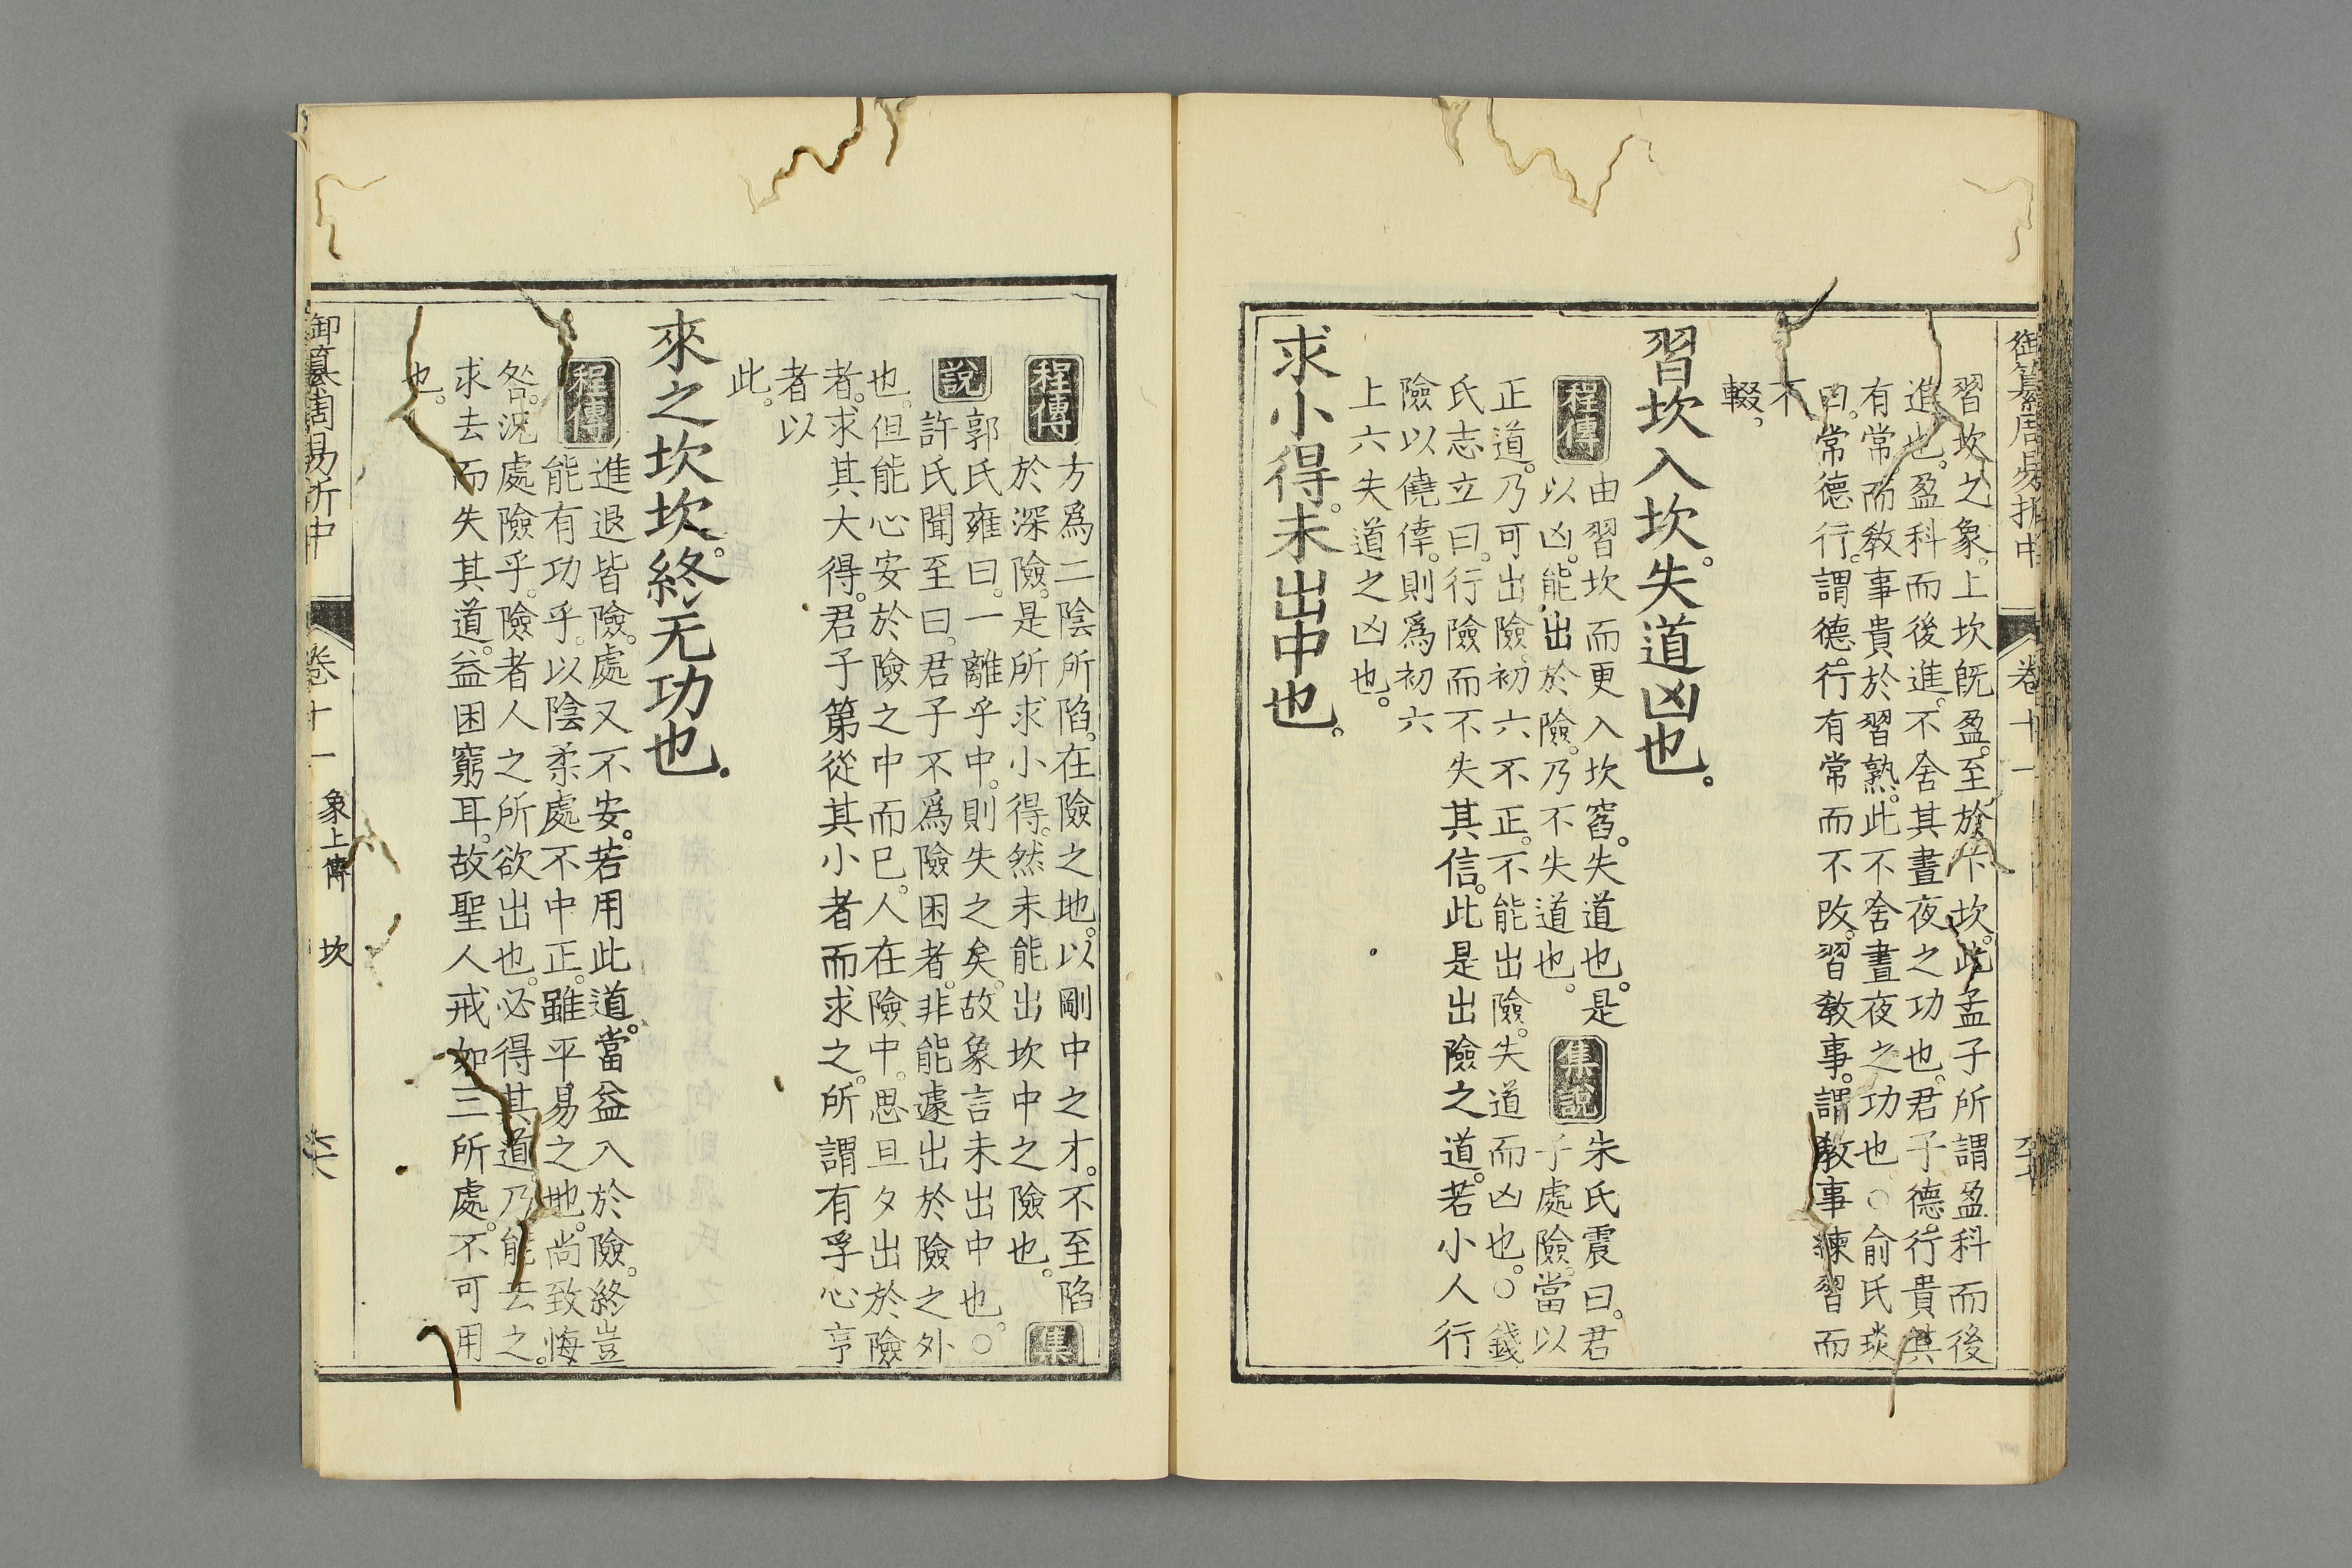 御纂周易折中 卷十一
習坎之象。上坎旣盈。至於下坎。此孟子所謂盈科而後
進也。盈科而後進。不舍其晝夜之功也。君子德行。貴其
有常。而敎事貴於習熟。此不舍晝夜之功也。○俞氏琰
曰。常德行。謂德行有常而不改。習敎事。謂敎事練習而
不
輟。
習坎入坎。失道凶也。
程傳
由習坎而更入坎窞。失道也。是
以凶。能出於險。乃不失道也。
集說
朱氏震曰。君
子處險。當以
正道。乃可出險。初六不正。不能出險。失道而凶也。○錢
氏志立曰。行險而不失其信。此是出險之道。若小人行
險以僥倖。則爲初六
上六失道之凶也。
求小得。未出中也。
程傳
方爲二陰所陷。在險之地。以剛中之才。不至陷
於深險。是所求小得。然未能出坎中之險也。
集
說
郭氏雍曰。一離乎中。則失之矣。故象言未出中也。○
許氏聞至曰。君子不爲險困者。非能遽出於險之外
也。但能心安於險之中而已。人在險中。思旦夕出於險
者。求其大得。君子第從其小者而求之。所謂有孚心亨
者以
此。
來之坎坎。終无功也。
程傳
進退皆險。處又不安。若用此道。當益入於險。終豈
能有功乎。以陰柔處不中正。雖平易之地。尚致悔
咎。況處險乎。險者人之所欲出也。必得其道。乃能去之。
求去而失其道。益困窮耳。故聖人戒如三所處。不可用
也。
御纂周易折中 卷十一 象上傳 坎